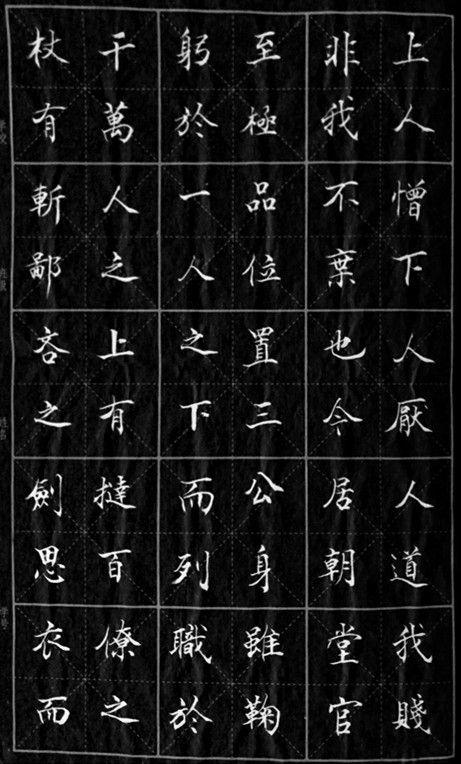 上人憎下人厭人道我賤
非我不葉也今居朝堂官
至極品位置三公身雖鞠
躬於一人之下而列職於
千萬人之上有撻百僚之
杖有斬鄙吝之劍思衣而
学校
班级
姓名
学号